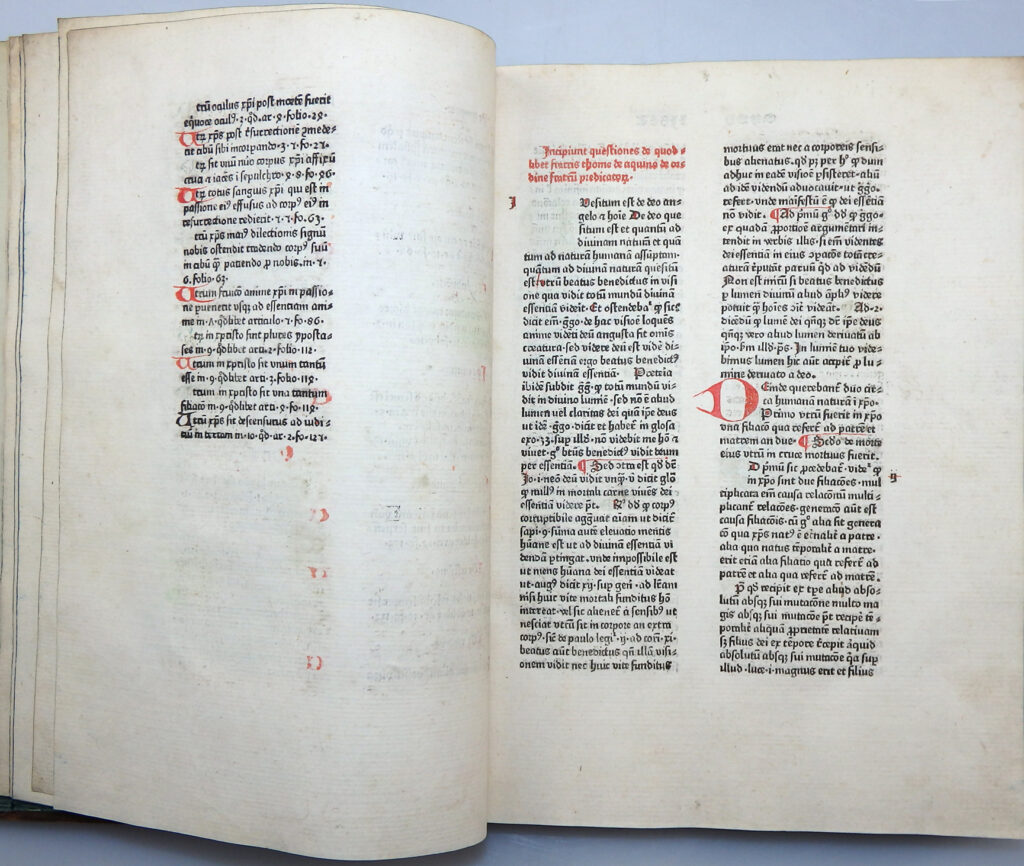 trū oculus xp̄i post mortē fuerit
equoce oculꝰ·2·qd·ar·8·folio·28·
Utꝝ xp̄s post resurrectionē ꝯmede-
rit cibū sibi incorpando·3·1·fo·21·
tꝝ sit unū nūo corpus xp̄i affixū
cruci ⁊ iacēs ī sepulchro·8·8·fo·86·
Utꝝ totus sanguis xp̄i qui est in
passione eiꝰ effusus ad corpꝰ eiꝰ in
resurrectione redierit·1·1·fo·63·
trū xp̄s maiꝰ dilectionis signū
nobis ostendit tradendo corpꝰ suū
in cibū ꝙ patiendo ꝓ nobis·m·1·
6·folio·63·
Utrum fruitō anime xp̄i in passio-
ne puenerit usqꝫ ad essentiam ani-
me m·Λ·qdlibet articulo·1·fo·86·
tꝝ in xp̄isto sint plures ypostа-
ses m·9·qdlibet arti·2·folio·112·
Utrum in xp̄isto sit unum tantū
esse m·9·qdlibet arti·3·folio·112·
trum in xp̄isto sit una tantum
filiatō m·9·qdlibet arti·8·fo·112·
Utrū xp̄s sit descensurus ad iudi-
ciū in terram m·10·qd·ar·2·fo·121·
Incipiunt questiones de quod-
libet fratris thome de aquino de or-
dine fratrū predicatoꝝ·
Uesitum est de deo an-
gelo ⁊ hoīe De deo que
situm est et quantū ad
diuinam naturā et quā
tum ad naturā humanā assūptam·
quantum ad diuinā naturā quesitū
est·utrū beatus benedictus in visi
one qua vidit totū mundū diuinā
essentiā viderit· Et ostendebaʳ ꝙ sic
dicit em̄·gḡo·de hac visiōe loquēs
anime vidēti deū angusta fit omīs
creatura·sed videre deū est videre di-
uinā essentiā ergo beatus benedictꝰ
vidit diuinā essentiā· Preteria
ibidē subdit gḡg·ꝙ totū mundū vi-
dit in diuino lumīe·sed nō ē aliud
lumen uel claritas dei quā ip̄e deus
ut idē·gḡo·dicit et habetʳ in glosa
exo·33·sup illd·nō videbit me hō ⁊
viuet·gͦ btūs benedictꝰ vidit deum
per essentiā· Sed ꝯtra est qd dr̄
Jo·i·neō deū vidit vnqꝫ·ū dicit glō
ꝙ nullꝰ in mortali carne viuēs dei
essentiā videre pt̄· R̄ dd̄ ꝙ corpꝰ
corruptibile aggrauat aīam ut dicitʳ
sapi·9·sūma aute eleuatio mentis
hūane est ut ad diuinā essentiā vi
dendā ptingat·unde impossibile est
ut mens hūana dei essentiā videat
ut·augꝰ dicit xij·sup gen̄·ad lr̄am
nisi huic vite mortali funditus hō
intereat·vl sic alienetʳ a sensibꝰ ut
nesciat vtrū sit in corpore an extra
corpꝰ·sic̄ de paulo legiʳ·ij·ad cor̄i·xi·
beatus aūt benedictus qn̄ illā visi-
onem vidit nec huic vite funditus
mortuus erat nec a corporeis sensi-
bus alienatus·qd pꝫ per hͦ ꝙ dum
adhuc in eadē visiōe psisteret·aliū
ad idē videndū aduocauit·ut gḡo·
refert·vnde manifestū ē ꝙ dei essentiā
nō vidit· Ad pmū gͦ dd̄ ꝙ gḡo-
ex quadā ꝓportiōe argumētari in-
tendit in verbis illis·si em̄ videntes
dei essentiā in eius ꝯpatōe totū crea-
turā reputant paruū qd ad vidēdū
Non est mirū si beatus benedictus
p lumen diuinū aliud āplꝰ videre
potuit ꝙ hoīes cōīt̄ videāt· Ad·2·
dicēdū ꝙ lumē dei qn̄qꝫ dr̄ ip̄e deus
qn̄qꝫ vero aliud lumen deriuatū ab
ip̄o·scm̄ illd·pˢ· In lumīe tuo vide-
bimus lumen hic aūt accipitʳ ꝓ lu-
mine deriuato a deo·
Deinde querebantʳ duo cir-
ca humanā naturā ī xp̄o·
Primo vtrū fuerit in xp̄o
vna filiatio qua refertʳ ad patrē et
matrem an due· Scdo de morte
eius vtrū in cruce mortuus fuerit·
D pmū sic pcedebatʳ·videʳ ꝙ
in xp̄o sint due filiatōes·mul
tiplicata em̄ causa relatōnū multi-
plicantʳ relatōes·generatō aūt est
causa filiatōis·cū gͦ alia sit genera
tō qua xp̄s natꝰ ē et̄naliter a patre·
alia qua natus tēporaliter a matre·
erit etiā alia filiatio qua refertʳ ad
patrē et alia qua refertʳ ad matrē·
P qd recipit ex tpe aliqd abso-
lutū absqꝫ sui mutatōne multo ma
gis absqꝫ sui mutatōe pt̄ recipe tē-
poraliter aliquā ꝓprietatē relatiuam
sꝫ filius dei ex tēpore recepit aliquid
absolutū absqꝫ sui mutatōe qa sup
illud·luce·i·magnus erit et filius